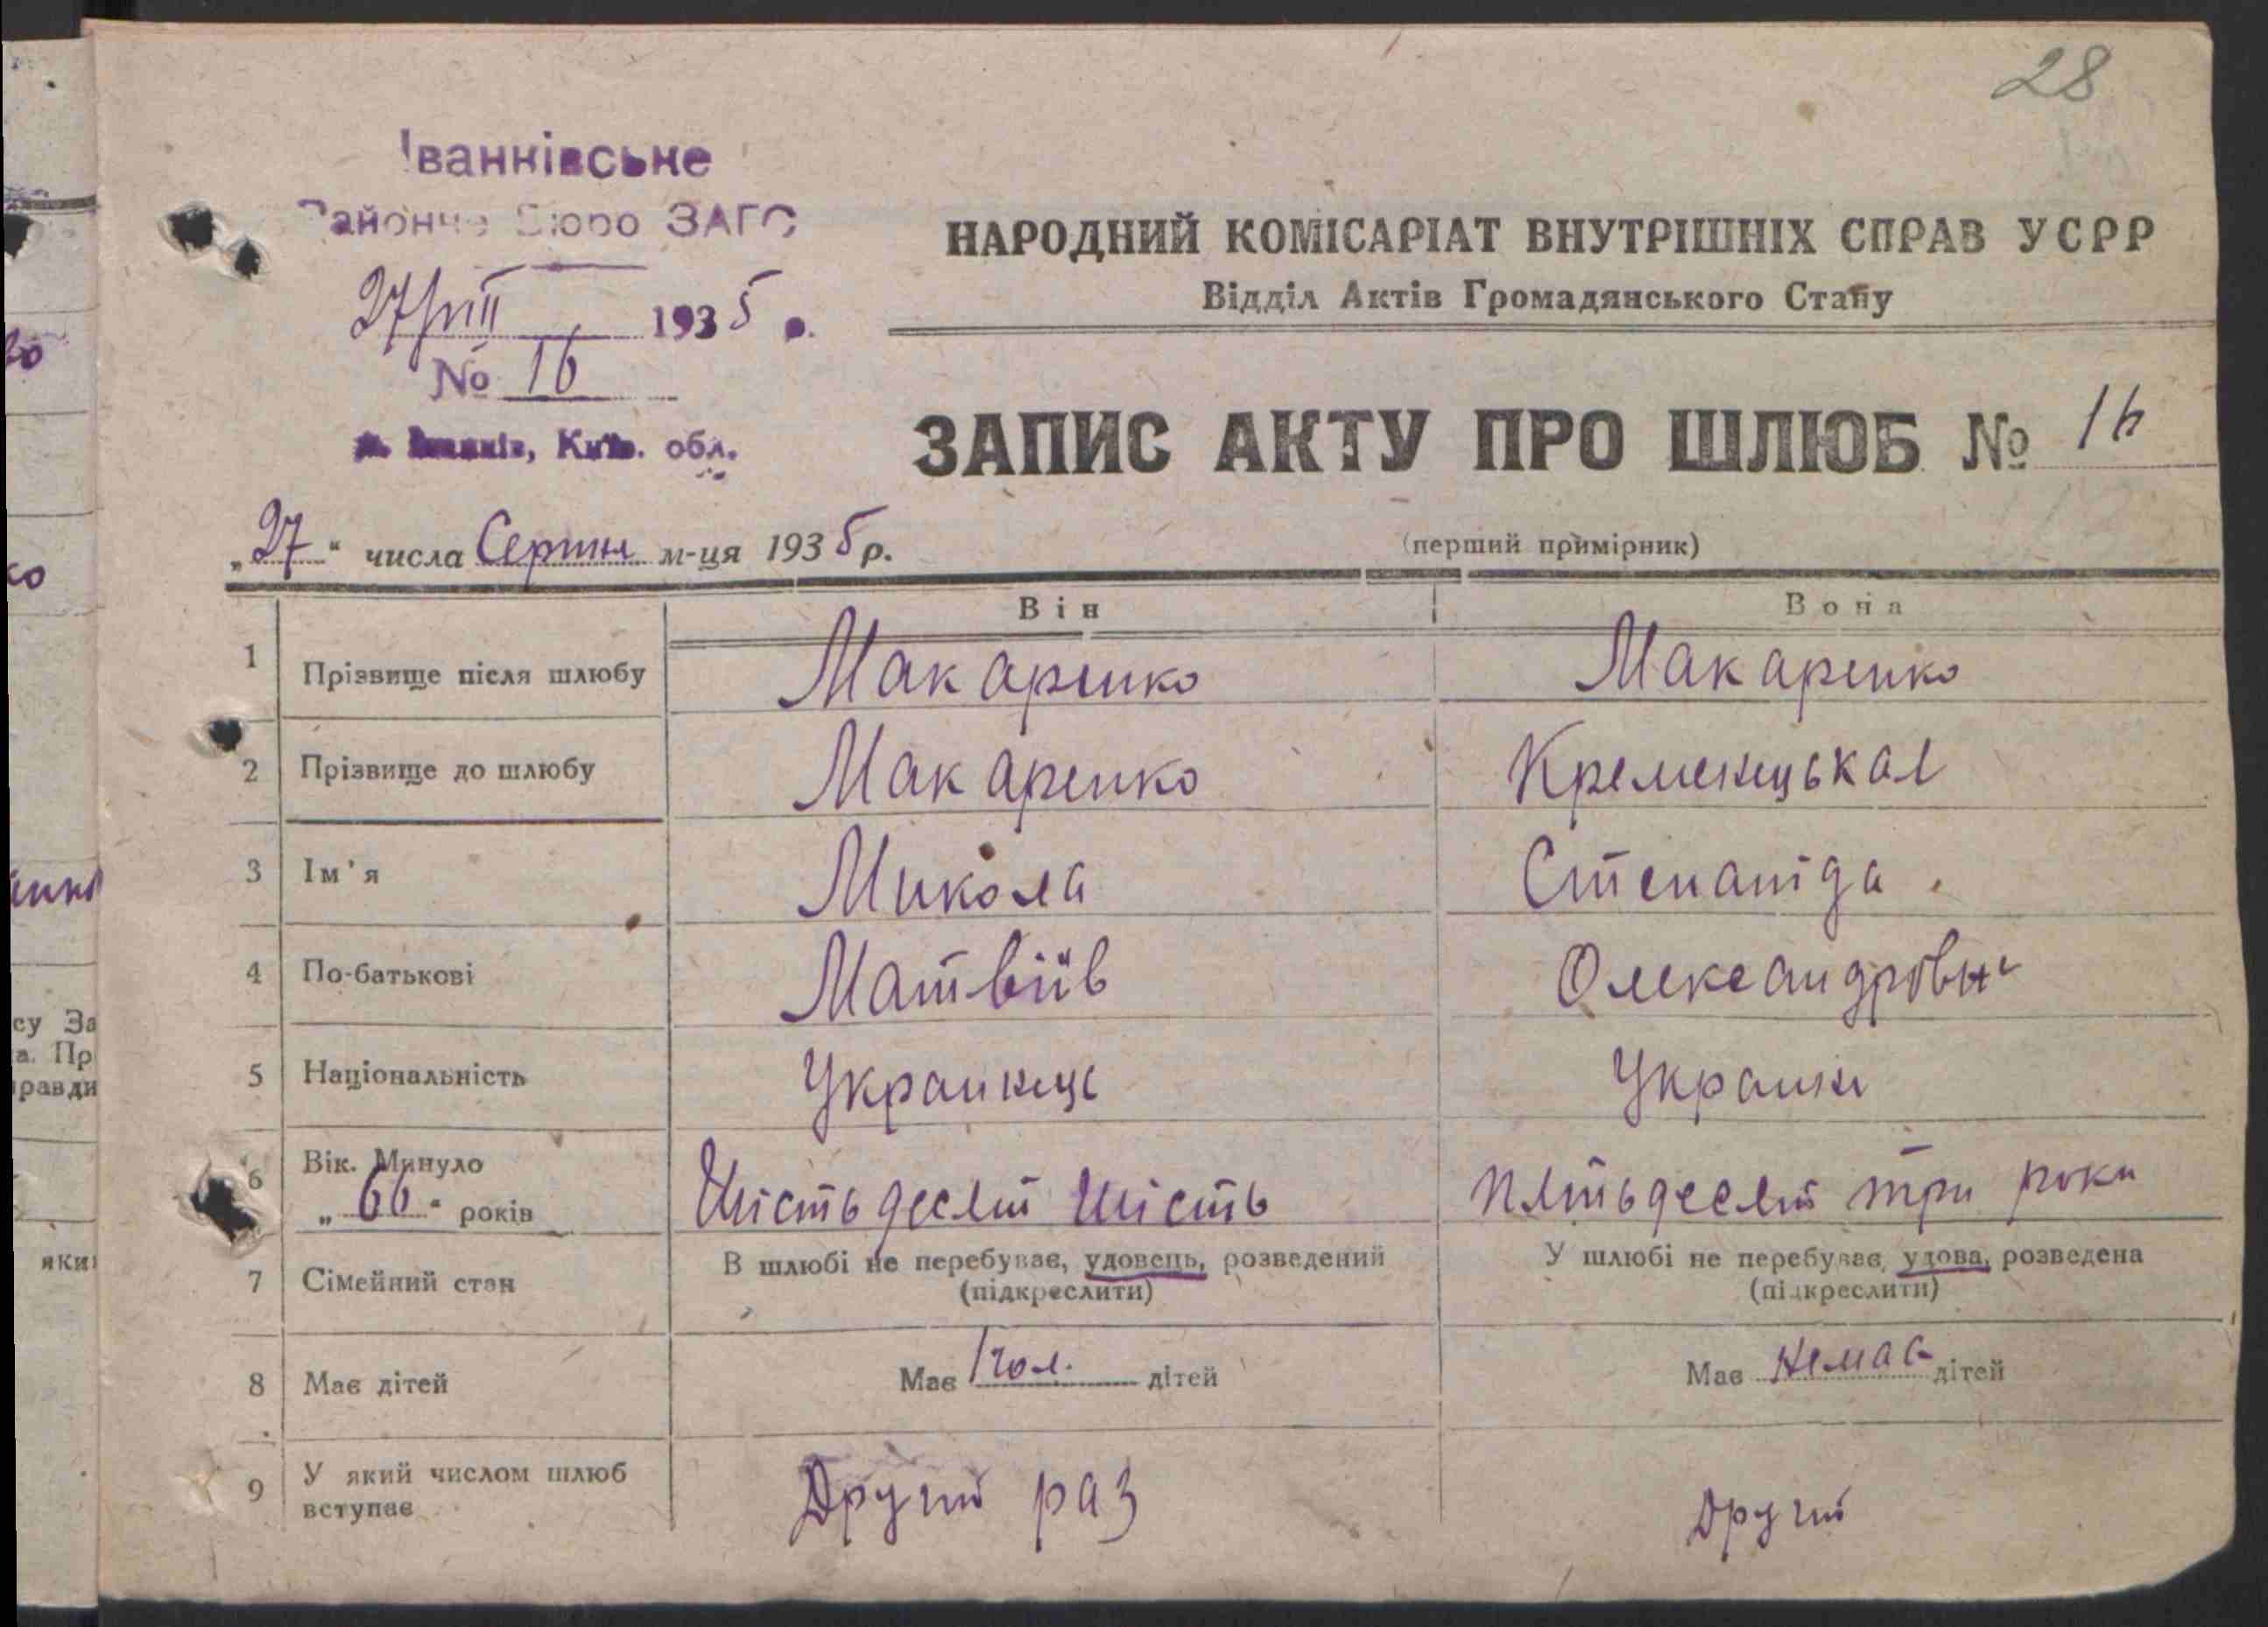 28
Іванківське
Районне Бюро ЗАГС
27/VIII 1935 р.
№ 16
м. Іванків, Київ. обл.
НАРОДНИЙ КОМІСАРІАТ ВНУТРІШНІХ СПРАВ УСРР
Відділ Актів Громадянського Стану
ЗАПИС АКТУ ПРО ШЛЮБ № 16
„27“ числа Серпня м-ця 1935 р.
(перший примірник)
Він Вона
1 Прізвище після шлюбу Макаренко Макаренко
2 Прізвище до шлюбу Макаренко Кременецькая
3 Ім'я Микола Степанида
4 По-батькові Матвіїв Олександровна
5 Національність Украинець Украинка
6 Вік. Минуло
„66“ років Шістьдесят шість Пятьдесят три роки
7 Сімейний стан В шлюбі не перебуває, удовець, розведений У шлюбі не перебуває, удова, розведена
(підкреслити) (підкреслити)
8 Має дітей Має 1 чол. дітей Має немає дітей
9 У який числом шлюб
вступає Другий раз Другий
су За
а. Пр
равди
яки